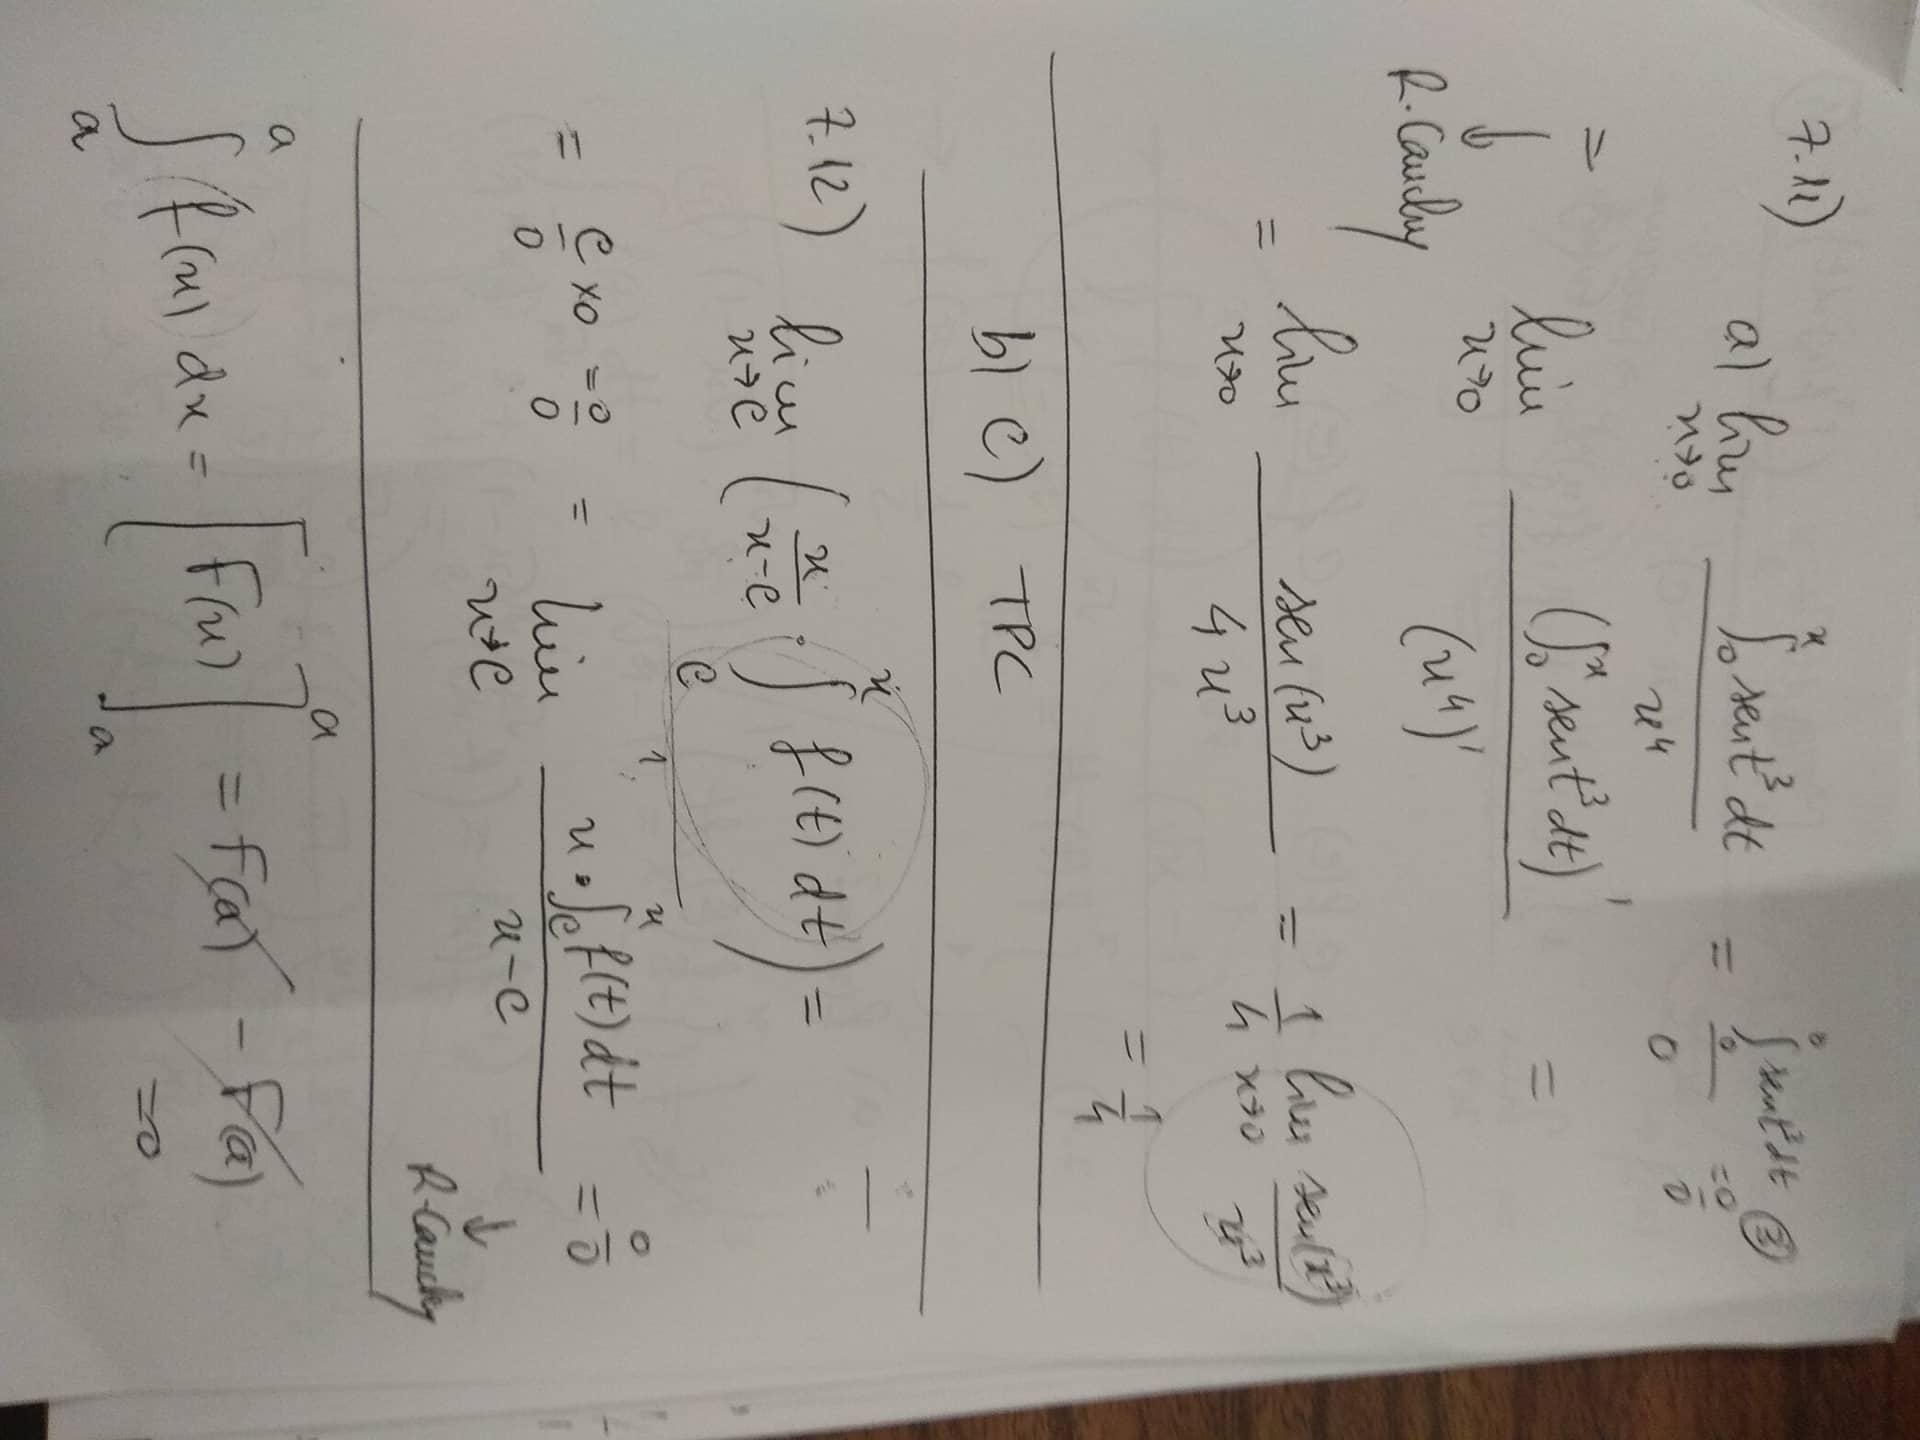 7.11)
a) lim x→0 ∫₀ˣ sen t³ dt / x⁴ = ∫₀⁰ sen t³ dt / 0 = 0/0 ③
= lim x→0 (∫₀ˣ sen t³ dt)' / (x⁴)' =
↓
R. Cauchy
= lim x→0 sen(x³) / 4x³ = 1/4 lim x→0 sen(x³) / x³
= 1/4
b) c) TPC
7.12) lim x→c (x/(x-c) · ∫_c^x f(t) dt) =
1
= c/0 × 0 = 0/0 = lim x→c x · ∫_c^x f(t) dt / x-c = 0/0
↓
R. Cauchy
∫_a^a f(x) dx = [F(x)]_a^a = F(a) - F(a)
= 0